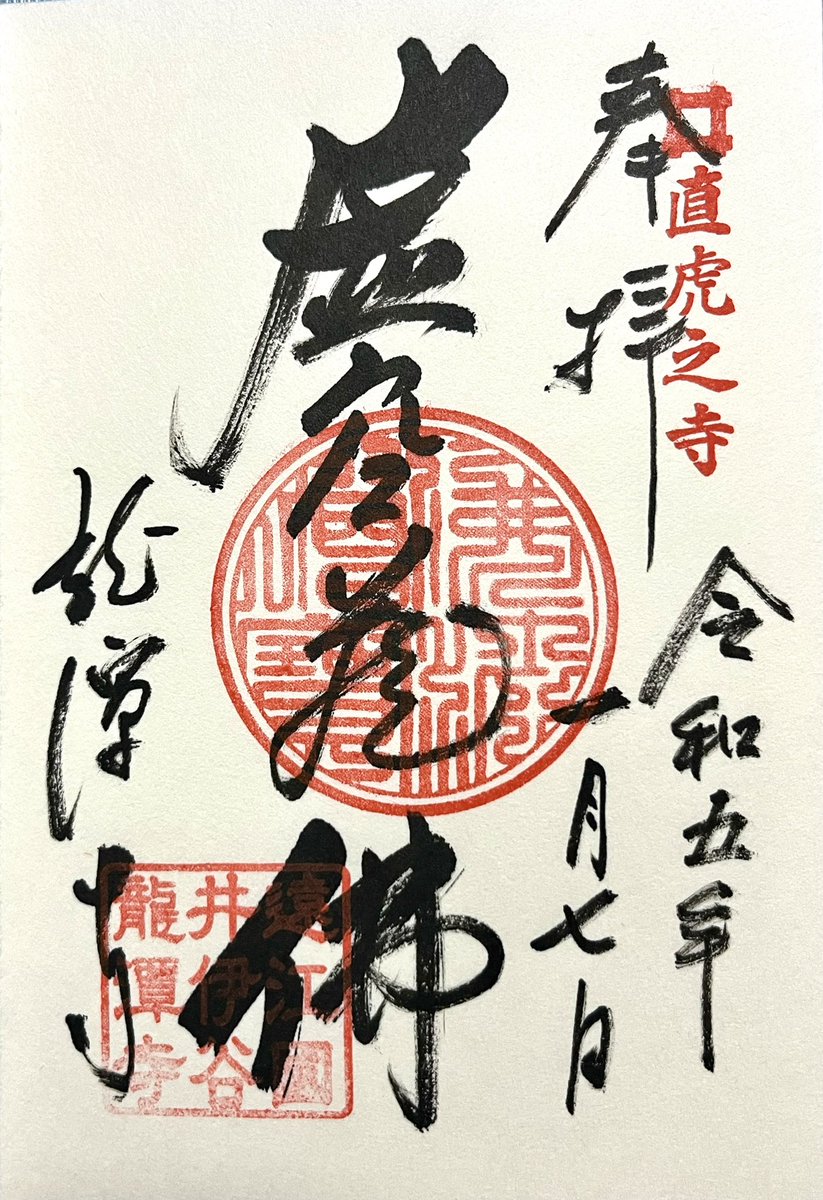 奉拝
直虎之寺
令和五年
一月七日
虚空蔵佛
龍潭寺
遠江國
井伊谷
龍潭寺